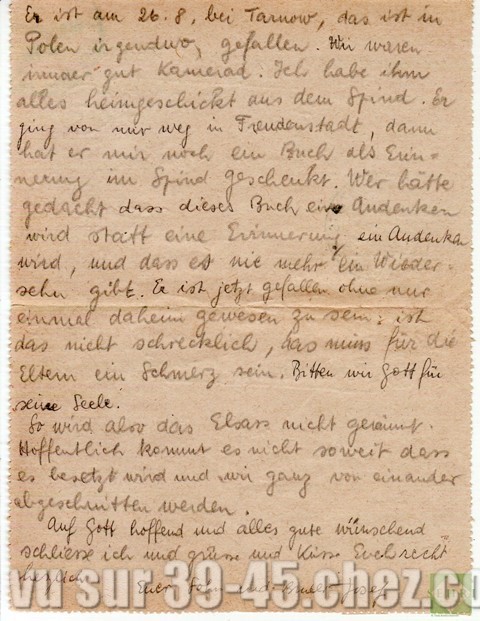 Er ist am 26.8, bei Tarnow, das ist in
Polen irgendwo, gefallen. Wir waren
immer gut Kamerad. Ich habe ihm
alles heimgeschickt aus dem Spind. Er
ging von mir weg in Freudenstadt, dann
hat er mir noch ein Buch als Erin=
nerung im Spind geschenkt. Wer hätte
gedacht dass dieses Buch ein Andenken
wird statt eine Erinnerung ein Andenken
wird, und dass es nie mehr ein Wieder-
sehn gibt. Er ist jetzt gefallen ohne nur
einmal daheim gewesen zu sein; ist
das nicht schrecklich, das muss für die
Eltern ein Schmerz sein. Bitten wir Gott für
seine Seele.
So wird also das Elsass nicht geräumt.
Hoffentlich kommt es nicht soweit dass
es besetzt wird und wir ganz von einander
abgeschnitten werden.
Auf Gott hoffend und alles gute wünschend
schliesse ich und grüsse und küsse Euch recht
herzlich
Euer Sohn und Bruder Josef
vu sur 39-45.chez.c